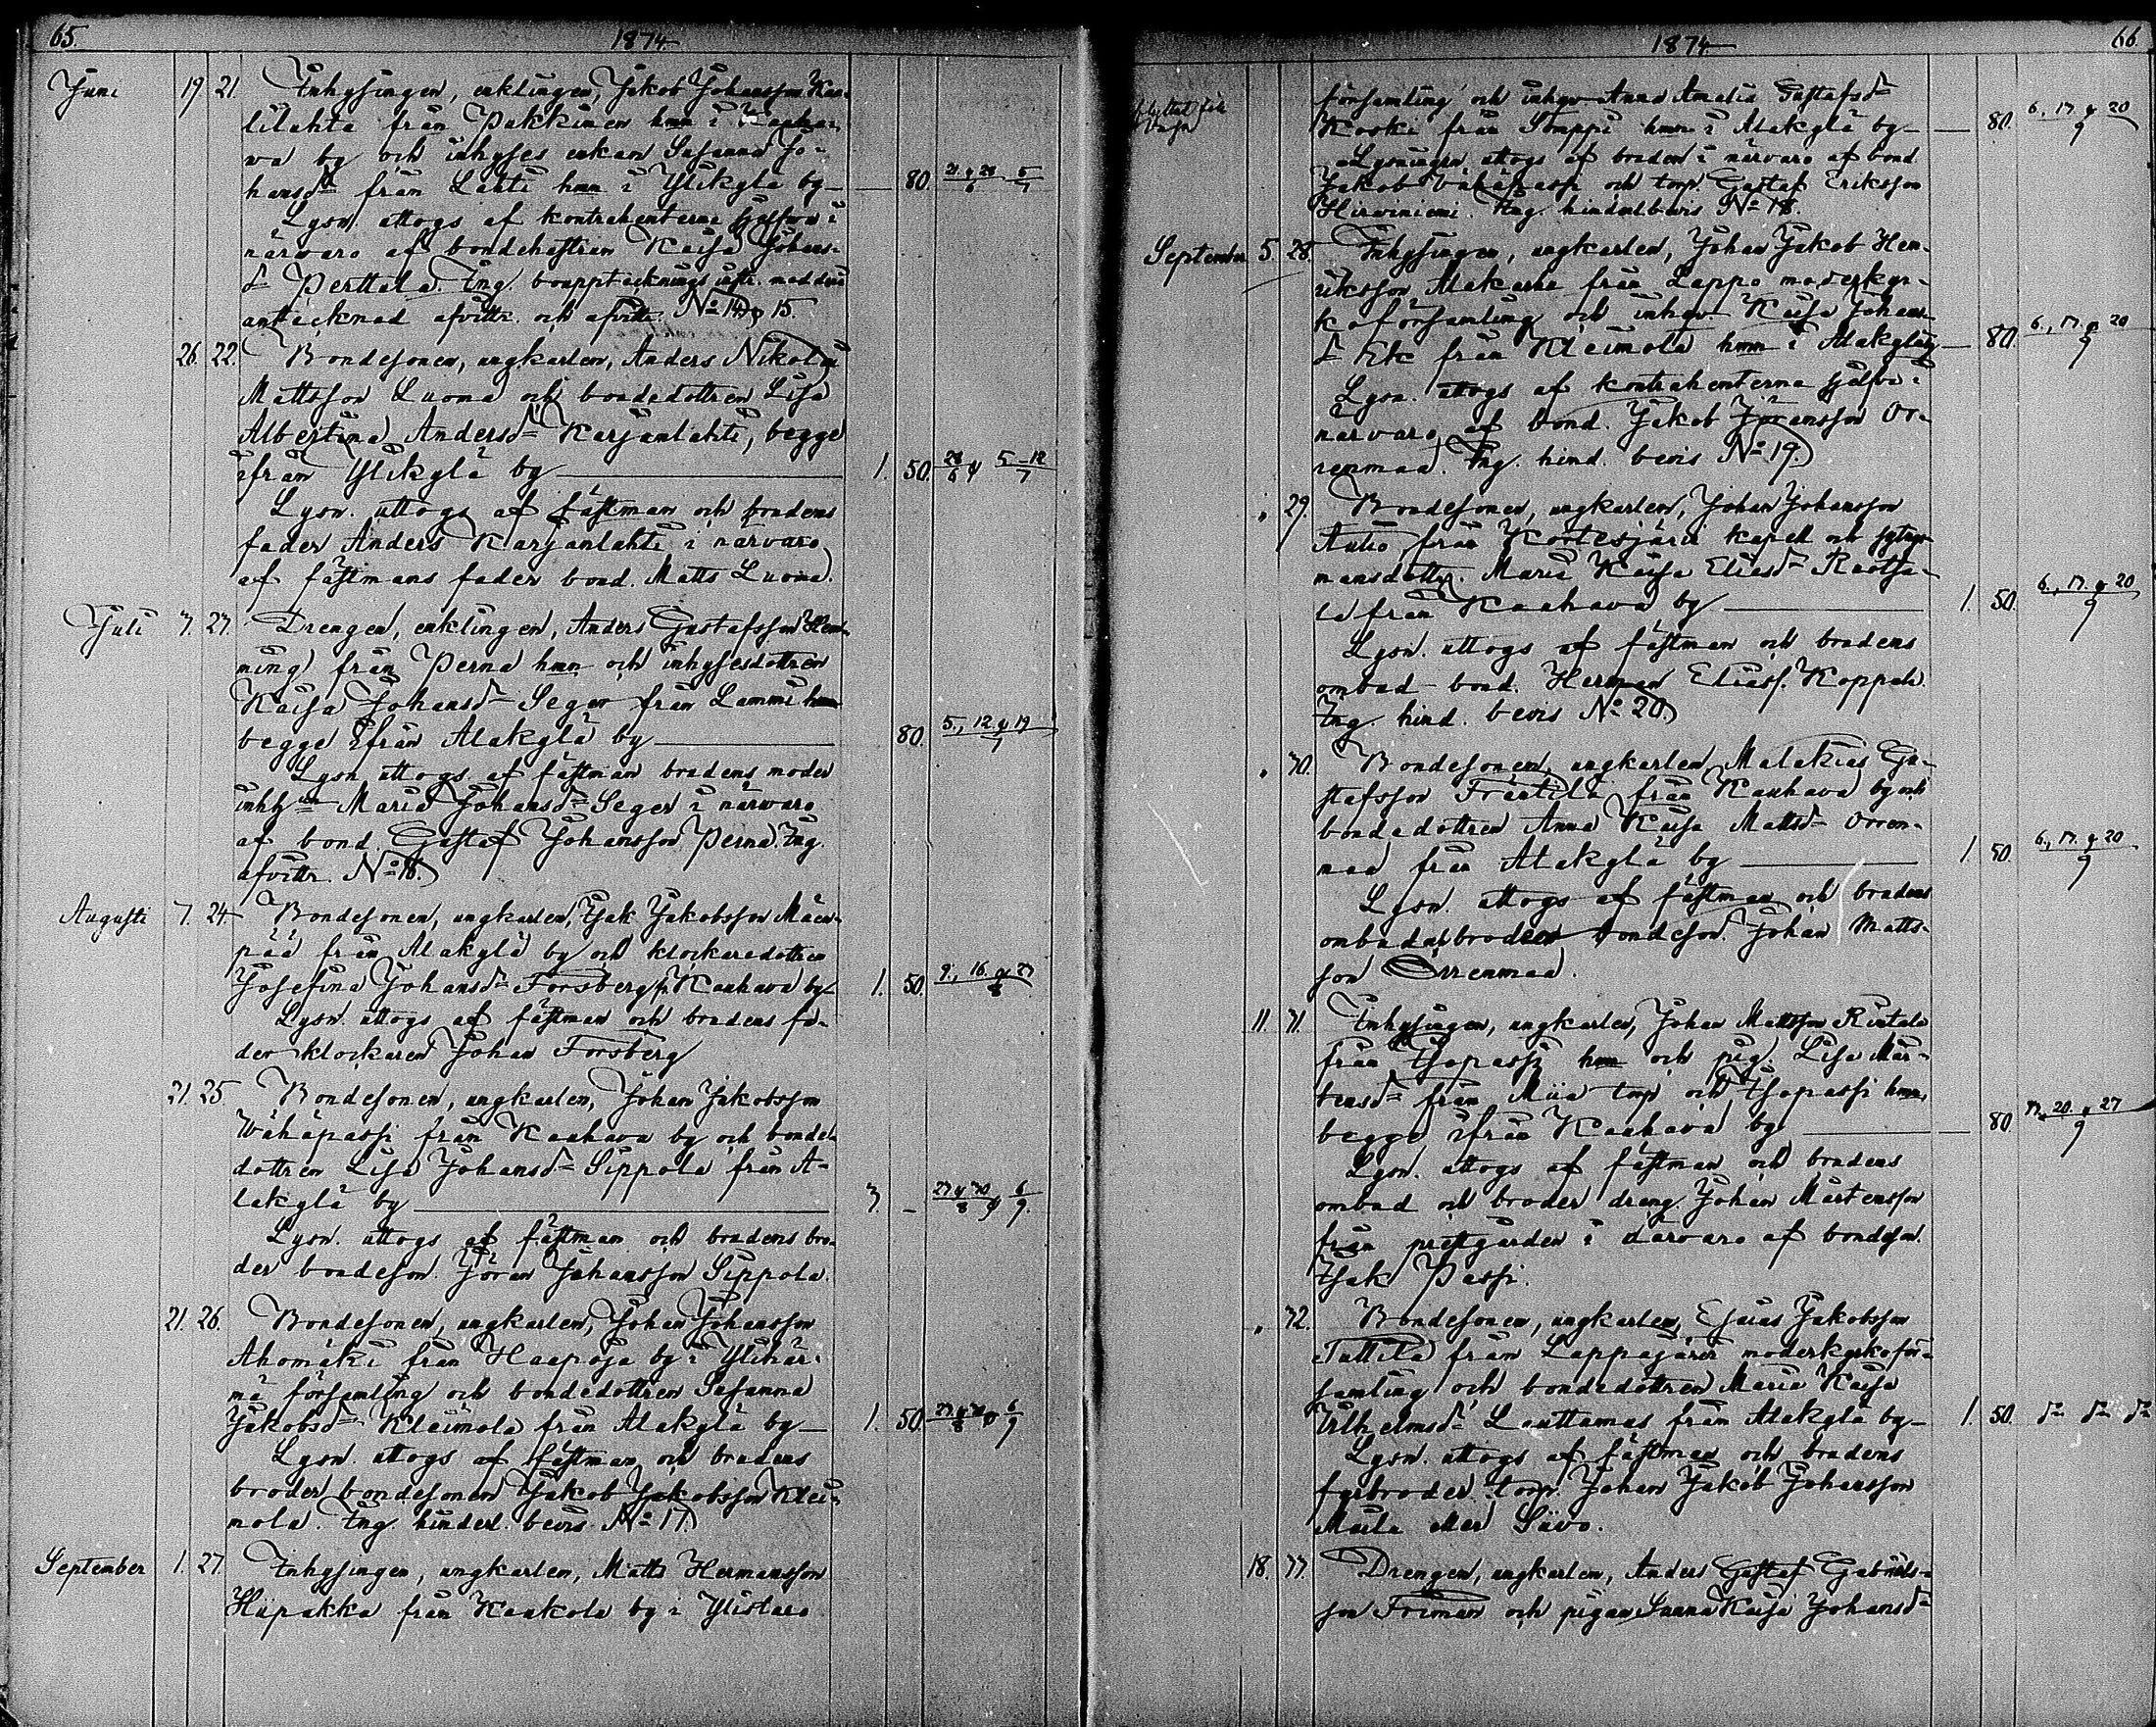 65. 1874
Juni 19 21. Inhysingen, enklingen, Jakob Johansson Kau-
lilahta från Pakkinen hmn i Kauha-
va by och inhyses enkan Susanna Jo-
hansdr från Lahti hmn i Ylikylä by — 80. 21 & 28/6 5/7
Lysn. uttogs af kontrahenterna sjelfva i
närvaro af bondehustrun Kaisa Johans-
dr Perttula. Ing. bouppteckningsinstr. med derå
antecknad afvittr. och afvittr. No 14 & 15.
26. 22. Bondesonen, ungkarlen, Anders Nikolai
Mattsson Luoma och bondedottren Lisa
Albertina Andersdr Karjanlahti, begge
ifrån Ylikylä by — 1. 50. 28/6 & 5 12/7
Lysn. uttogs af fästman och brudens
fader Anders Karjanlahti i närvaro
af fästmans fader bond. Matts Luoma.
Juli 3. 23. Drengen, enklingen, Anders Gustafsson Hem-
ming från Perna hmn och inhysesdottren
Kaisa Johansdr Seger från Lammi hmn
begge ifrån Alakylä by — 80. 5., 12 & 19/7
Lysn. uttogs af fästman brudens moder
inhyn Maria Johansdr Seger i närvaro
af bond. Gustaf Johansson Perna. Ing.
afvittr. No 16.
Augusti 7. 24 Bondesonen, ungkarlen, Isak Jakobsson Mäen-
pää från Alakylä by och klockaredottren
Josefina Johansdr Forsberg fr. Kauhava by — 1. 50. 9., 16 & 23/8
Lysn. uttogs af fästman och brudens fa-
der klockaren Johan Forsberg
21. 25 Bondesonen, ungkarlen, Johan Jakobsson
Wähäpassi från Kauhava by och bonde-
dottren Lisa Johansdr Sippola från A-
lakylä by — 3. - 23 & 30/8 & 6/9.
Lysn. uttogs af fästman och brudens bro-
der bondeson. Jöran Johansson Sippola.
21. 26. Bondesonen, ungkarlen, Johan Johansson
Ahomäki från Haapoja by i Ylihär-
mä församling och bondedottren Susanna
Jakobsdr Kleimola från Alakylä by — 1. 50. 23 & 30/8 & 6/9
Lysn. uttogs af fästman och brudens
broder bondesonen Jakob Jakobsson Klei-
mola. Ing. hinderl. bevis No 17
September 1. 27. Inhysingen, ungkarlen, Matts Hermansson
Hiipakka från Kaukola by i Ylistaro
1874 66.
församling och inhys Anna Amalia Gustafsdr
Koski från Somppi hmn i Alakylä by — 80. 6., 13. & 20/9
Lysningen uttogs af bruden i närvaro af bond.
Jakob Wähäpassi och torp. Gustaf Eriksson
Hirviniemi. Ing. hinderl. bevis No 18.
September 5. 28. Inhysingen, ungkarlen, Johan Jakob Hen-
riksson Alakarna från Lappo moderkyr-
koförsamling och inhys Kaisa Johans-
dr Ek från Kleimola hmn i Alakylä by — 80. 6., 13. & 20/9
Lysn. uttogs af kontrahenterna sjelfva i
närvaro af bond. Jakob Jöransson Or-
renmaa. Ing. hind. bevis No 19.
" 29. Bondesonen, ungkarlen, Johan Johansson
Autio från Kortesjärvi kapell och sytnings-
mansdottr. Maria Kaisa Eliasdr Ruotsa-
la från Kauhava by — 1. 50. 6., 13. & 20/9
Lysn. uttogs af fästman och brudens
ombud bond. Herman Eliass. Koppale.
Ing. hind. bevis No 20.
" 30. Bondesonen, ungkarlen Malakias Gu-
stafsson Fräntilä från Kauhava by och
bondedottren Anna Kaisa Mattsdr Orren-
maa från Alakylä by — 1. 50. 6., 13. & 20/9
Lysn. uttogs af fästman och brudens
ombud brodren bondeson. Johan Matts-
son Orrenmaa.
11. 31. Inhysingen, ungkarlen, Johan Mattsson Rintala
från Isopassi hmn och pig. Lisa Mår-
tensdr från Miia torp och Isopassi hmn,
begge ifrån Kauhava by — 80 13. 20. & 27/9
Lysn. uttogs af fästman och brudens
ombud och broder dreng. Johan Mårtensson
från prestgården i närvaro af bondeson.
Isak Passi.
" 32. Bondesonen, ungkarlen, Esaias Jakobsson
Tuttila från Lappajärvi moderkyrkoför-
samling och bondedottren Maria Kaisa
Wilhelmsdr Luuttamas från Alakylä by — 1. 50. dr dr dr
Lysn. uttogs af fästman och brudens
farbroder torp. Johan Jakob Johansson
eller Sävo.
18. 33. Drengen, ungkarlen, Anders Gustaf Gabriels-
son Friman och pigan Sanna Kaisa Johansdr